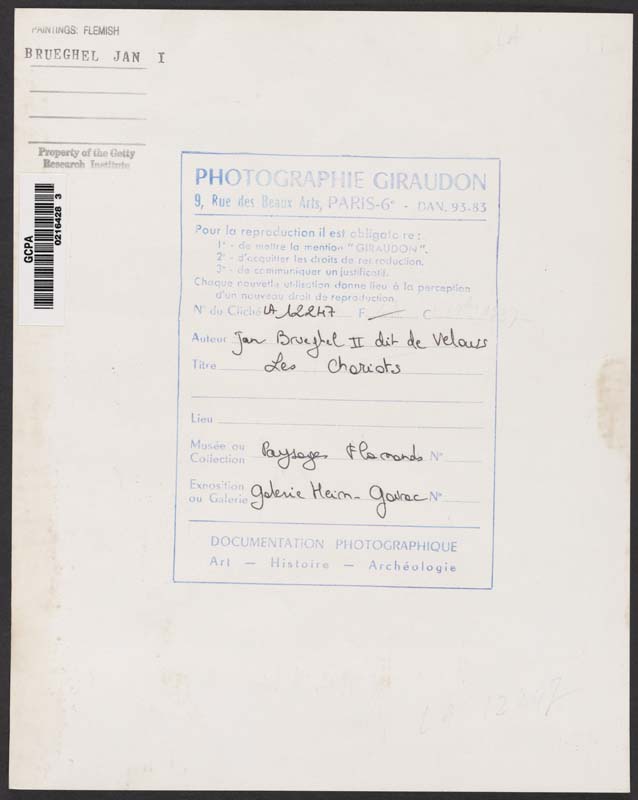 PAINTINGS: FLEMISH
BRUEGHEL JAN I
Property of the Getty
Research Institute
GCPA
0216428 3
PHOTOGRAPHIE GIRAUDON
9, Rue des Beaux Arts, PARIS-6e - DAN. 93-83
Pour la reproduction il est obligatoire :
1° - de mettre la mention "GIRAUDON".
2° - d'acquitter les droits de reproduction.
3° - de communiquer un justificatif.
Chaque nouvelle utilisation donne lieu à la perception
d'un nouveau droit de reproduction.
N° du Cliché LA 12247 F — C
Auteur Jan Brueghel II dit de Velours
Titre Les Chariots
Lieu
Musée ou
Collection Paysages Flamands N°
Exposition
ou Galerie Galerie Heim-Gairac N°
DOCUMENTATION PHOTOGRAPHIQUE
Art — Histoire — Archéologie
LA 12247